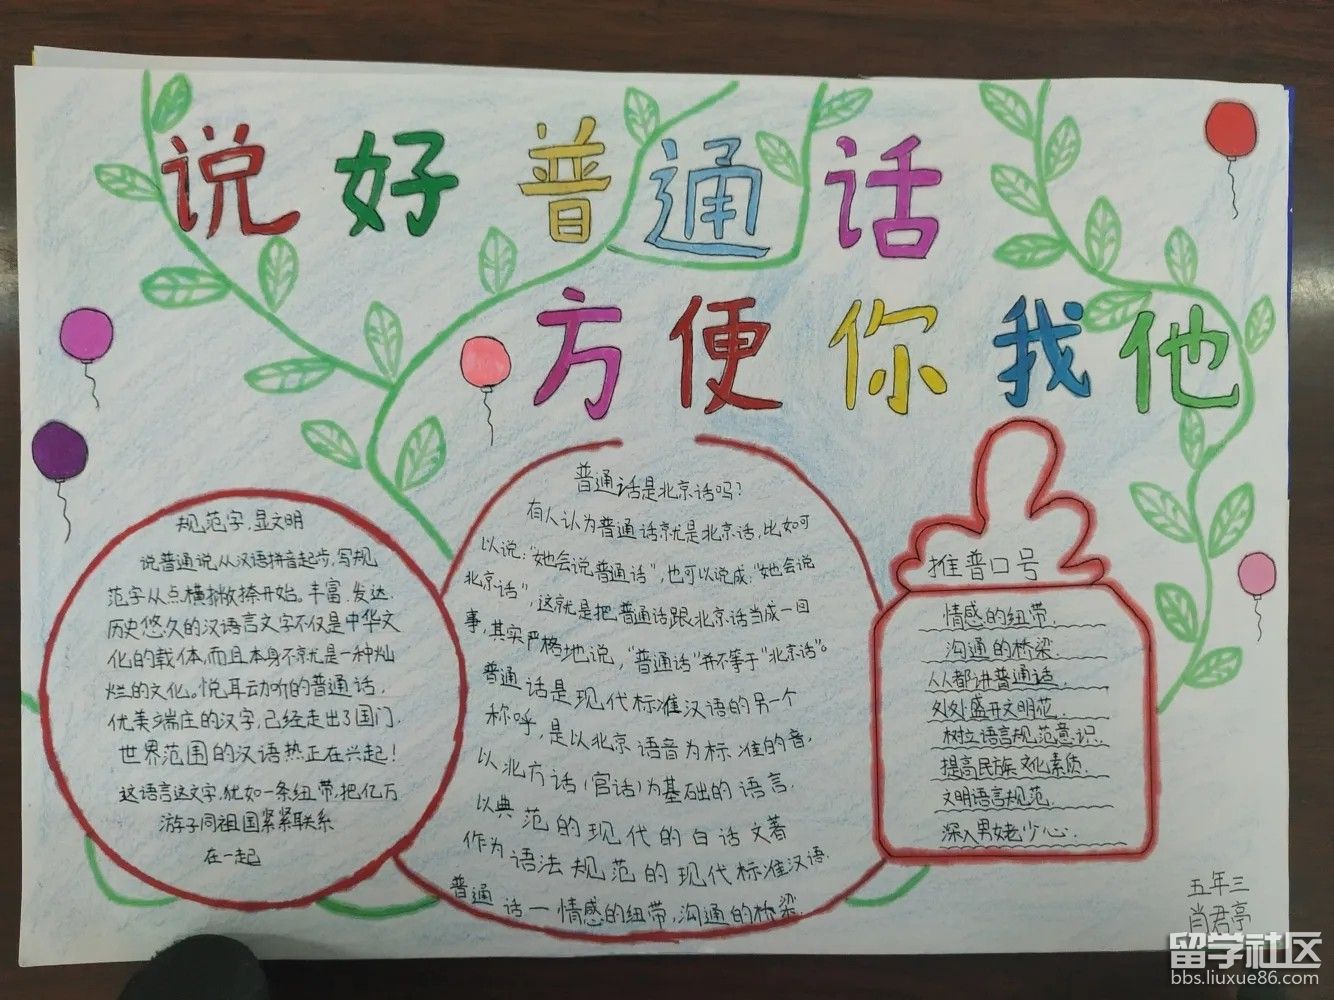 说好普通话
方便你我他
规范字,显文明
说普通说,从汉语拼音起步,写规
范字从点横撇捺开始。丰富、发达、
历史悠久的汉语言文字不仅是中华文
化的载体,而且本身不就是一种灿
烂的文化。悦耳动听的普通话,
优美端庄的汉字,已经走出了国门,
世界范围的汉语热正在兴起!
这语言这文字,犹如一条纽带,把亿万
游子同祖国紧紧联系
在一起
普通话是北京话吗?
有人认为普通话就是北京话,比如可
以说:“她会说普通话”,也可以说成:“她会说
北京话”,这就是把普通话跟北京话当成一回
事,其实严格地说,“普通话”并不等于“北京话”。
普通话是现代标准汉语的另一个
称呼,是以北京语音为标准的音,
以北方话(官话)为基础的语言,
以典范的现代的白话文著
作为语法规范的现代标准汉语.
普通话一情感的纽带,沟通的桥梁.
推普口号
情感的纽带.
沟通的桥梁.
人人都讲普通话.
处处盛开文明花.
树立语言规范意识.
提高民族文化素质.
文明语言规范.
深入男女老少心.
五年三
肖君亭
留学社区
bbs.liuxue86.com